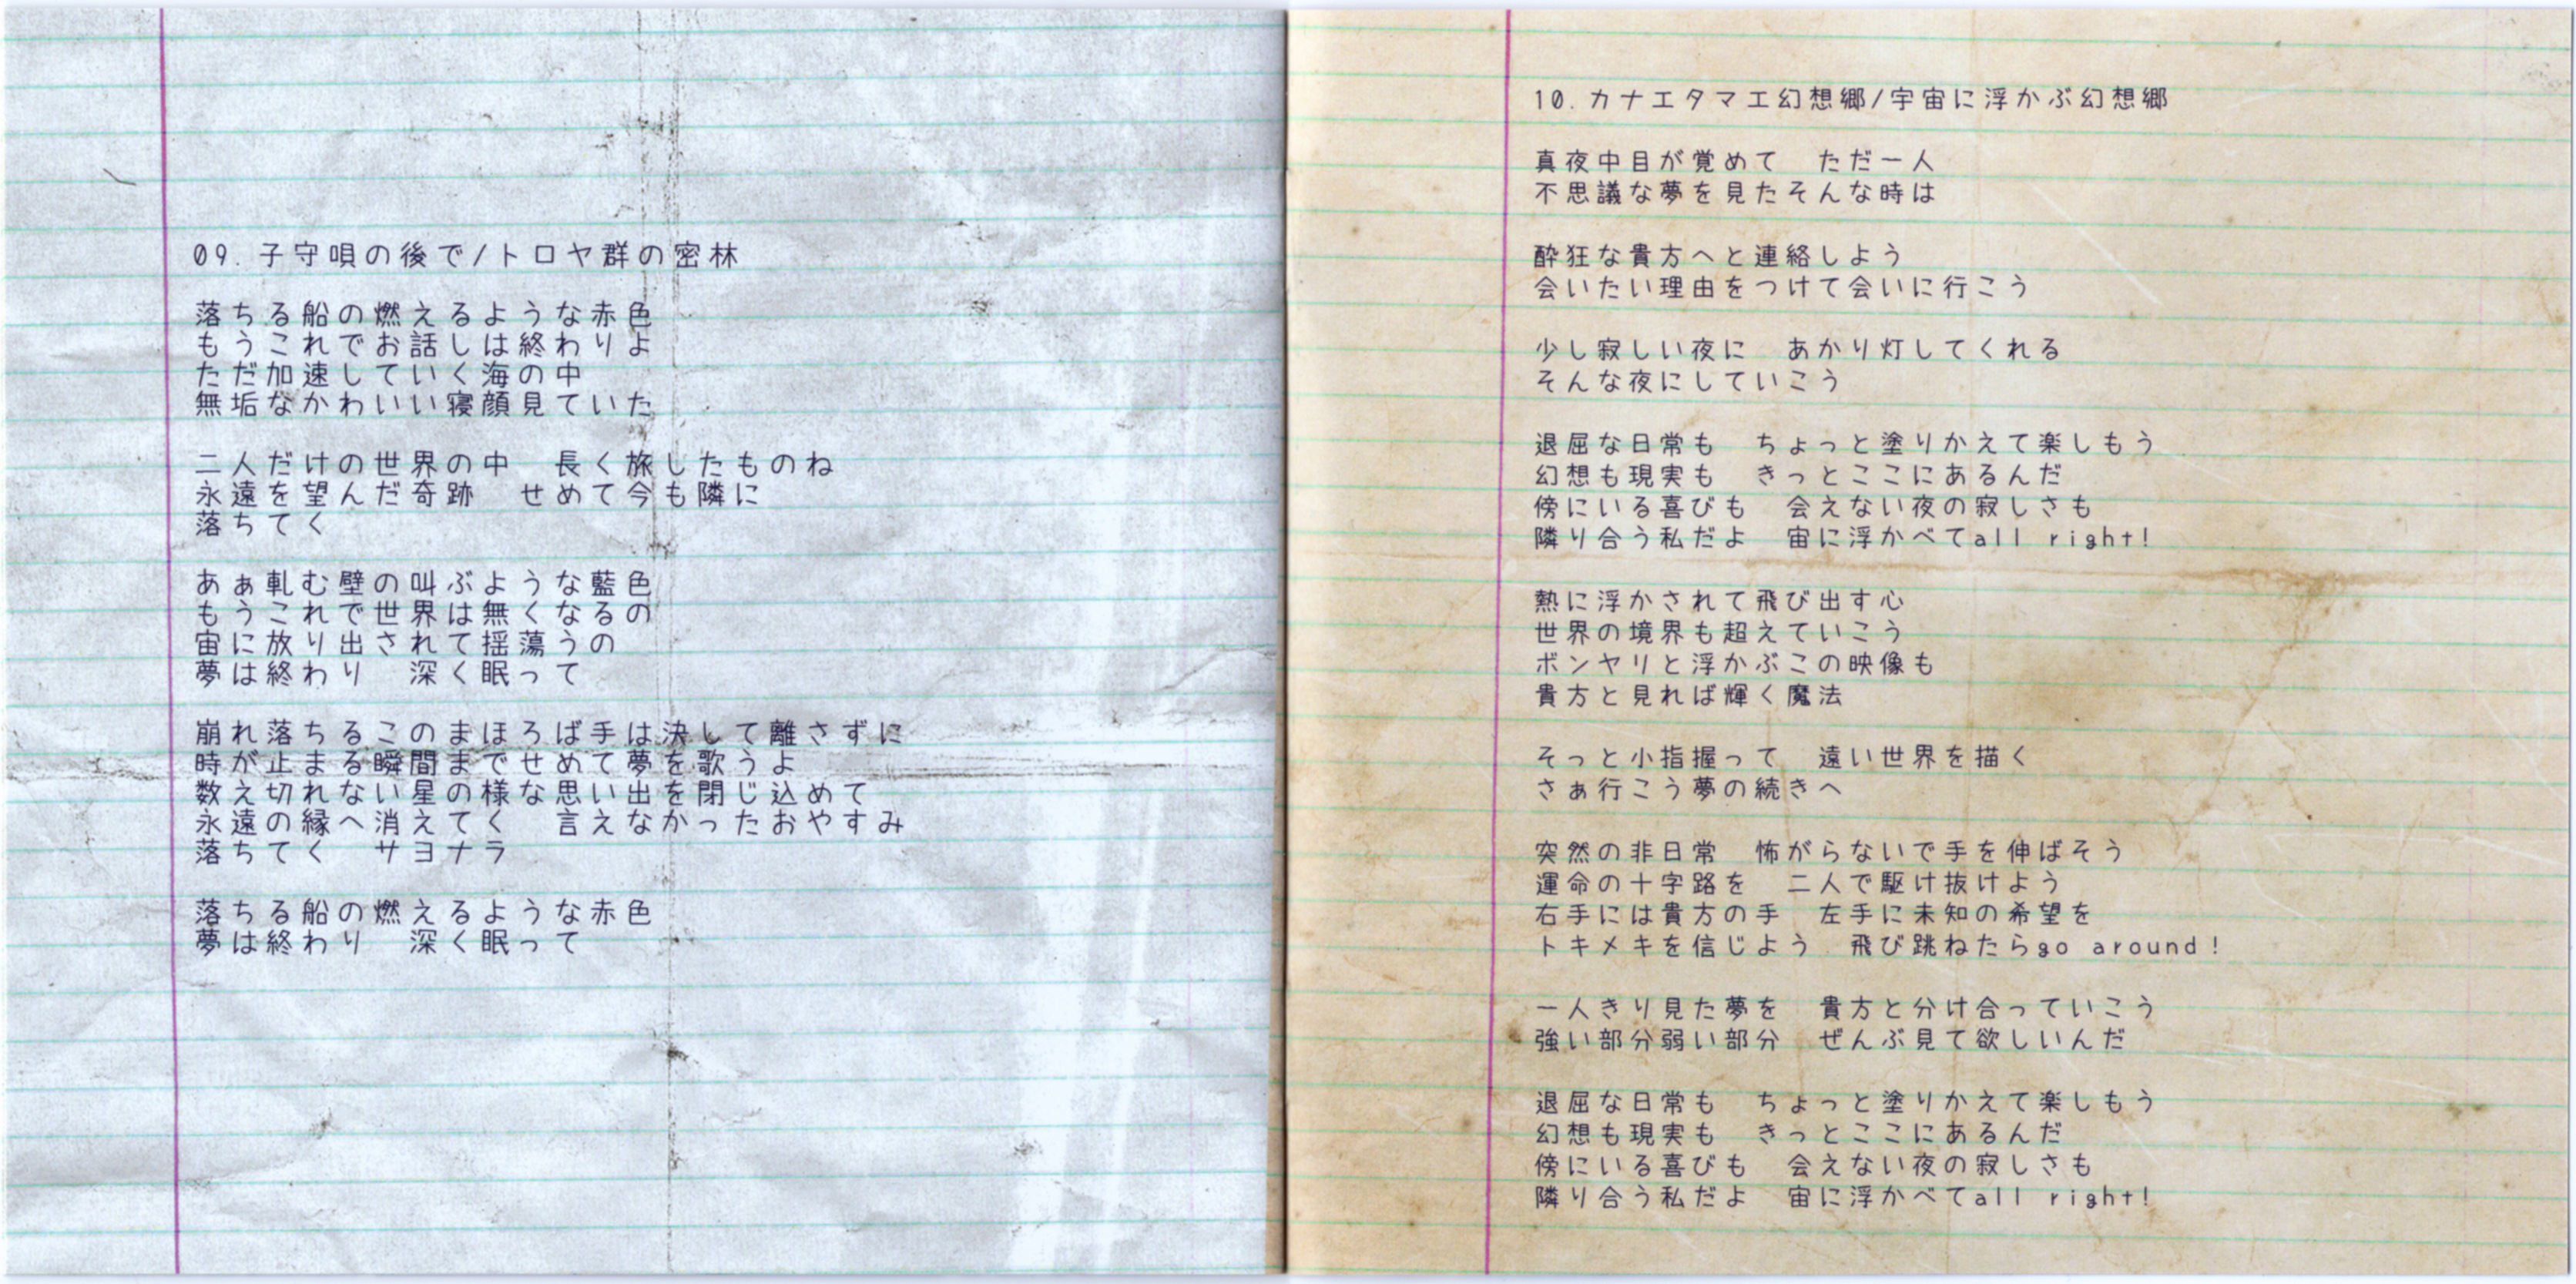 09. 子守唄の後で/トロヤ群の密林
落ちる船の燃えるような赤色
もうこれでお話しは終わりよ
ただ加速していく海の中
無垢なかわいい寝顔見ていた
二人だけの世界の中　長く旅したものね
永遠を望んだ奇跡　せめて今も隣に
落ちてく
あぁ軋む壁の叫ぶような藍色
もうこれで世界は無くなるの
宙に放り出されて揺蕩うの
夢は終わり　深く眠って
崩れ落ちるこのまほろば手は決して離さずに
時が止まる瞬間までせめて夢を歌うよ
数え切れない星の様な思い出を閉じ込めて
永遠の縁へ消えてく　言えなかったおやすみ
落ちてく　サヨナラ
落ちる船の燃えるような赤色
夢は終わり　深く眠って
10. カナエタマエ幻想郷/宇宙に浮かぶ幻想郷
真夜中目が覚めて　ただ一人
不思議な夢を見たそんな時は
酔狂な貴方へと連絡しよう
会いたい理由をつけて会いに行こう
少し寂しい夜に　あかり灯してくれる
そんな夜にしていこう
退屈な日常も　ちょっと塗りかえて楽しもう
幻想も現実も　きっとここにあるんだ
傍にいる喜びも　会えない夜の寂しさも
隣り合う私だよ　宙に浮かべてall right!
熱に浮かされて飛び出す心
世界の境界も超えていこう
ボンヤリと浮かぶこの映像も
貴方と見れば輝く魔法
そっと小指握って　遠い世界を描く
さぁ行こう夢の続きへ
突然の非日常　怖がらないで手を伸ばそう
運命の十字路を　二人で駆け抜けよう
右手には貴方の手　左手に未知の希望を
トキメキを信じよう　飛び跳ねたらgo around!
一人きり見た夢を　貴方と分け合っていこう
強い部分弱い部分　ぜんぶ見て欲しいんだ
退屈な日常も　ちょっと塗りかえて楽しもう
幻想も現実も　きっとここにあるんだ
傍にいる喜びも　会えない夜の寂しさも
隣り合う私だよ　宙に浮かべてall right!